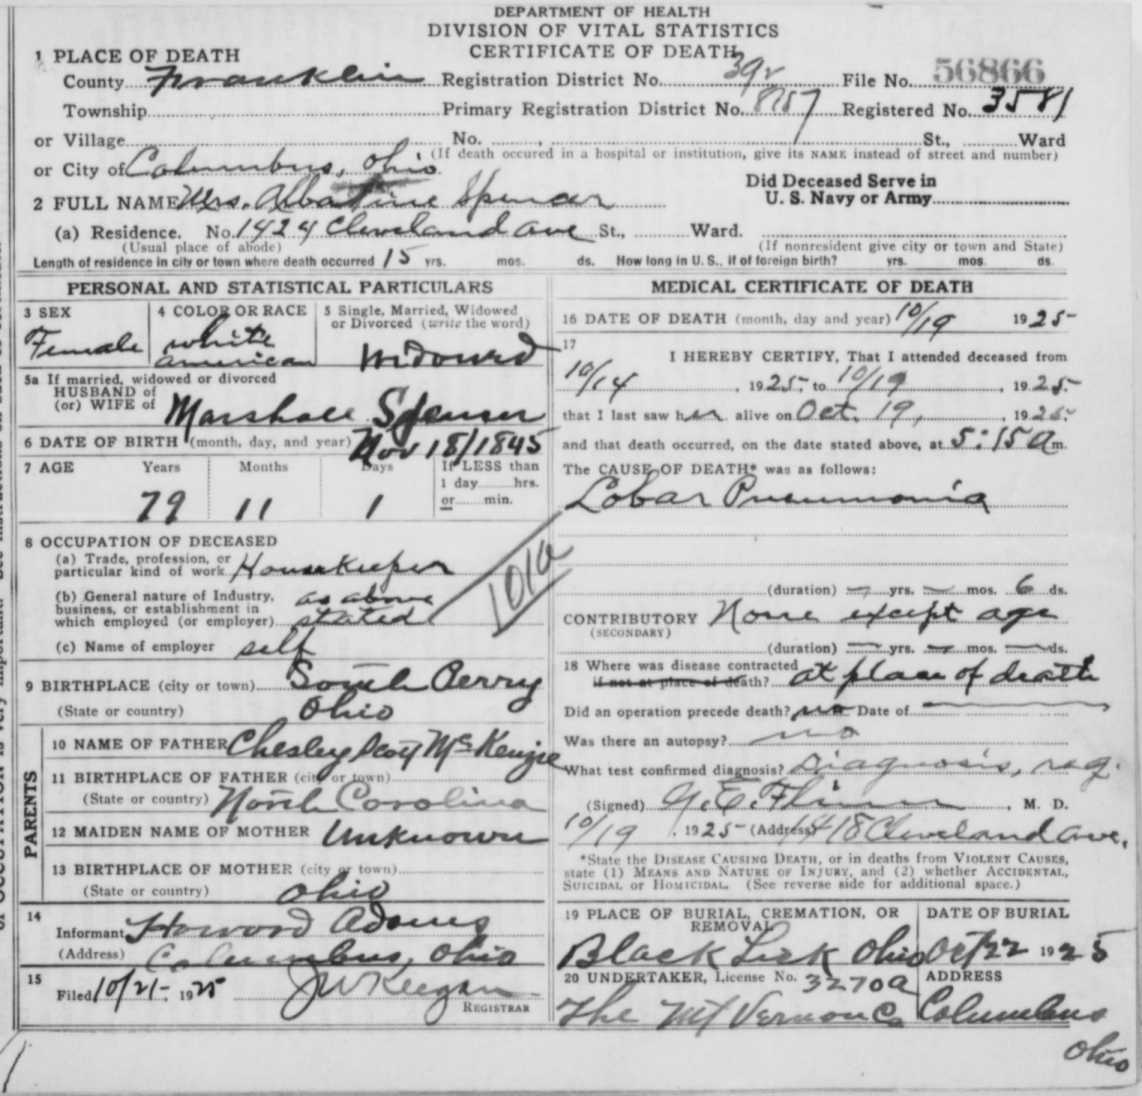 DEPARTMENT OF HEALTH
DIVISION OF VITAL STATISTICS
CERTIFICATE OF DEATH
1 PLACE OF DEATH
County Franklin Registration District No. 392 File No. 56866
Township Primary Registration District No. 8187 Registered No. 3581
or Village No. , St., Ward
or City of Columbus, Ohio. (If death occured in a hospital or institution, give its NAME instead of street and number)
Did Deceased Serve in
U. S. Navy or Army
2 FULL NAME Mrs. Albatine Spencer
(a) Residence. No. 1424 Cleveland Ave St., Ward.
(Usual place of abode) (If nonresident give city or town and State)
Length of residence in city or town where death occurred 15 yrs. mos. ds. How long in U. S., if of foreign birth? yrs. mos. ds.
PERSONAL AND STATISTICAL PARTICULARS
3 SEX
Female
4 COLOR OR RACE
white
american
5 Single, Married, Widowed
or Divorced (write the word)
Widowed
5a If married, widowed or divorced
HUSBAND of
(or) WIFE of Marshall Spencer
6 DATE OF BIRTH (month, day, and year) Nov 18/1845
7 AGE Years Months Days If LESS than
1 day hrs.
or min.
79 11 1
8 OCCUPATION OF DECEASED
(a) Trade, profession, or
particular kind of work Housekeeper
(b) General nature of Industry,
business, or establishment in
which employed (or employer) as above
stated
(c) Name of employer self
101a
9 BIRTHPLACE (city or town) South Perry
(State or country) Ohio
PARENTS
10 NAME OF FATHER Chesley Scott McKenzie
11 BIRTHPLACE OF FATHER (city or town)
(State or country) North Carolina
12 MAIDEN NAME OF MOTHER Unknown
13 BIRTHPLACE OF MOTHER (city or town)
(State or country) Ohio
14
Informant Howard Adams
(Address) Columbus, Ohio
15
Filed 10/21, 1925 J W Keegan
REGISTRAR
MEDICAL CERTIFICATE OF DEATH
16 DATE OF DEATH (month, day and year) 10/19 1925
17
I HEREBY CERTIFY, That I attended deceased from
10/14, 1925, to 10/19, 1925
that I last saw her alive on Oct. 19, 1925.
and that death occurred, on the date stated above, at 5:15 a m.
The CAUSE OF DEATH* was as follows:
Lobar Pneumonia
(duration) – yrs. – mos. 6 ds.
CONTRIBUTORY None except age
(SECONDARY)
(duration) – yrs. – mos. – ds.
18 Where was disease contracted
if not at place of death? at place of death
Did an operation precede death? no Date of
Was there an autopsy? no
What test confirmed diagnosis? Diagnosis, reg.
(Signed) , M. D.
10/19, 1925 (Address) 1418 Cleveland Ave.
*State the DISEASE CAUSING DEATH, or in deaths from VIOLENT CAUSES,
state (1) MEANS AND NATURE OF INJURY, and (2) whether ACCIDENTAL,
SUICIDAL or HOMICIDAL. (See reverse side for additional space.)
19 PLACE OF BURIAL, CREMATION, OR
REMOVAL
Black Lick Ohio
DATE OF BURIAL
Oct 22 1925
20 UNDERTAKER, License No. 3270a
The Mt Vernon Co
ADDRESS
Columbus
Ohio